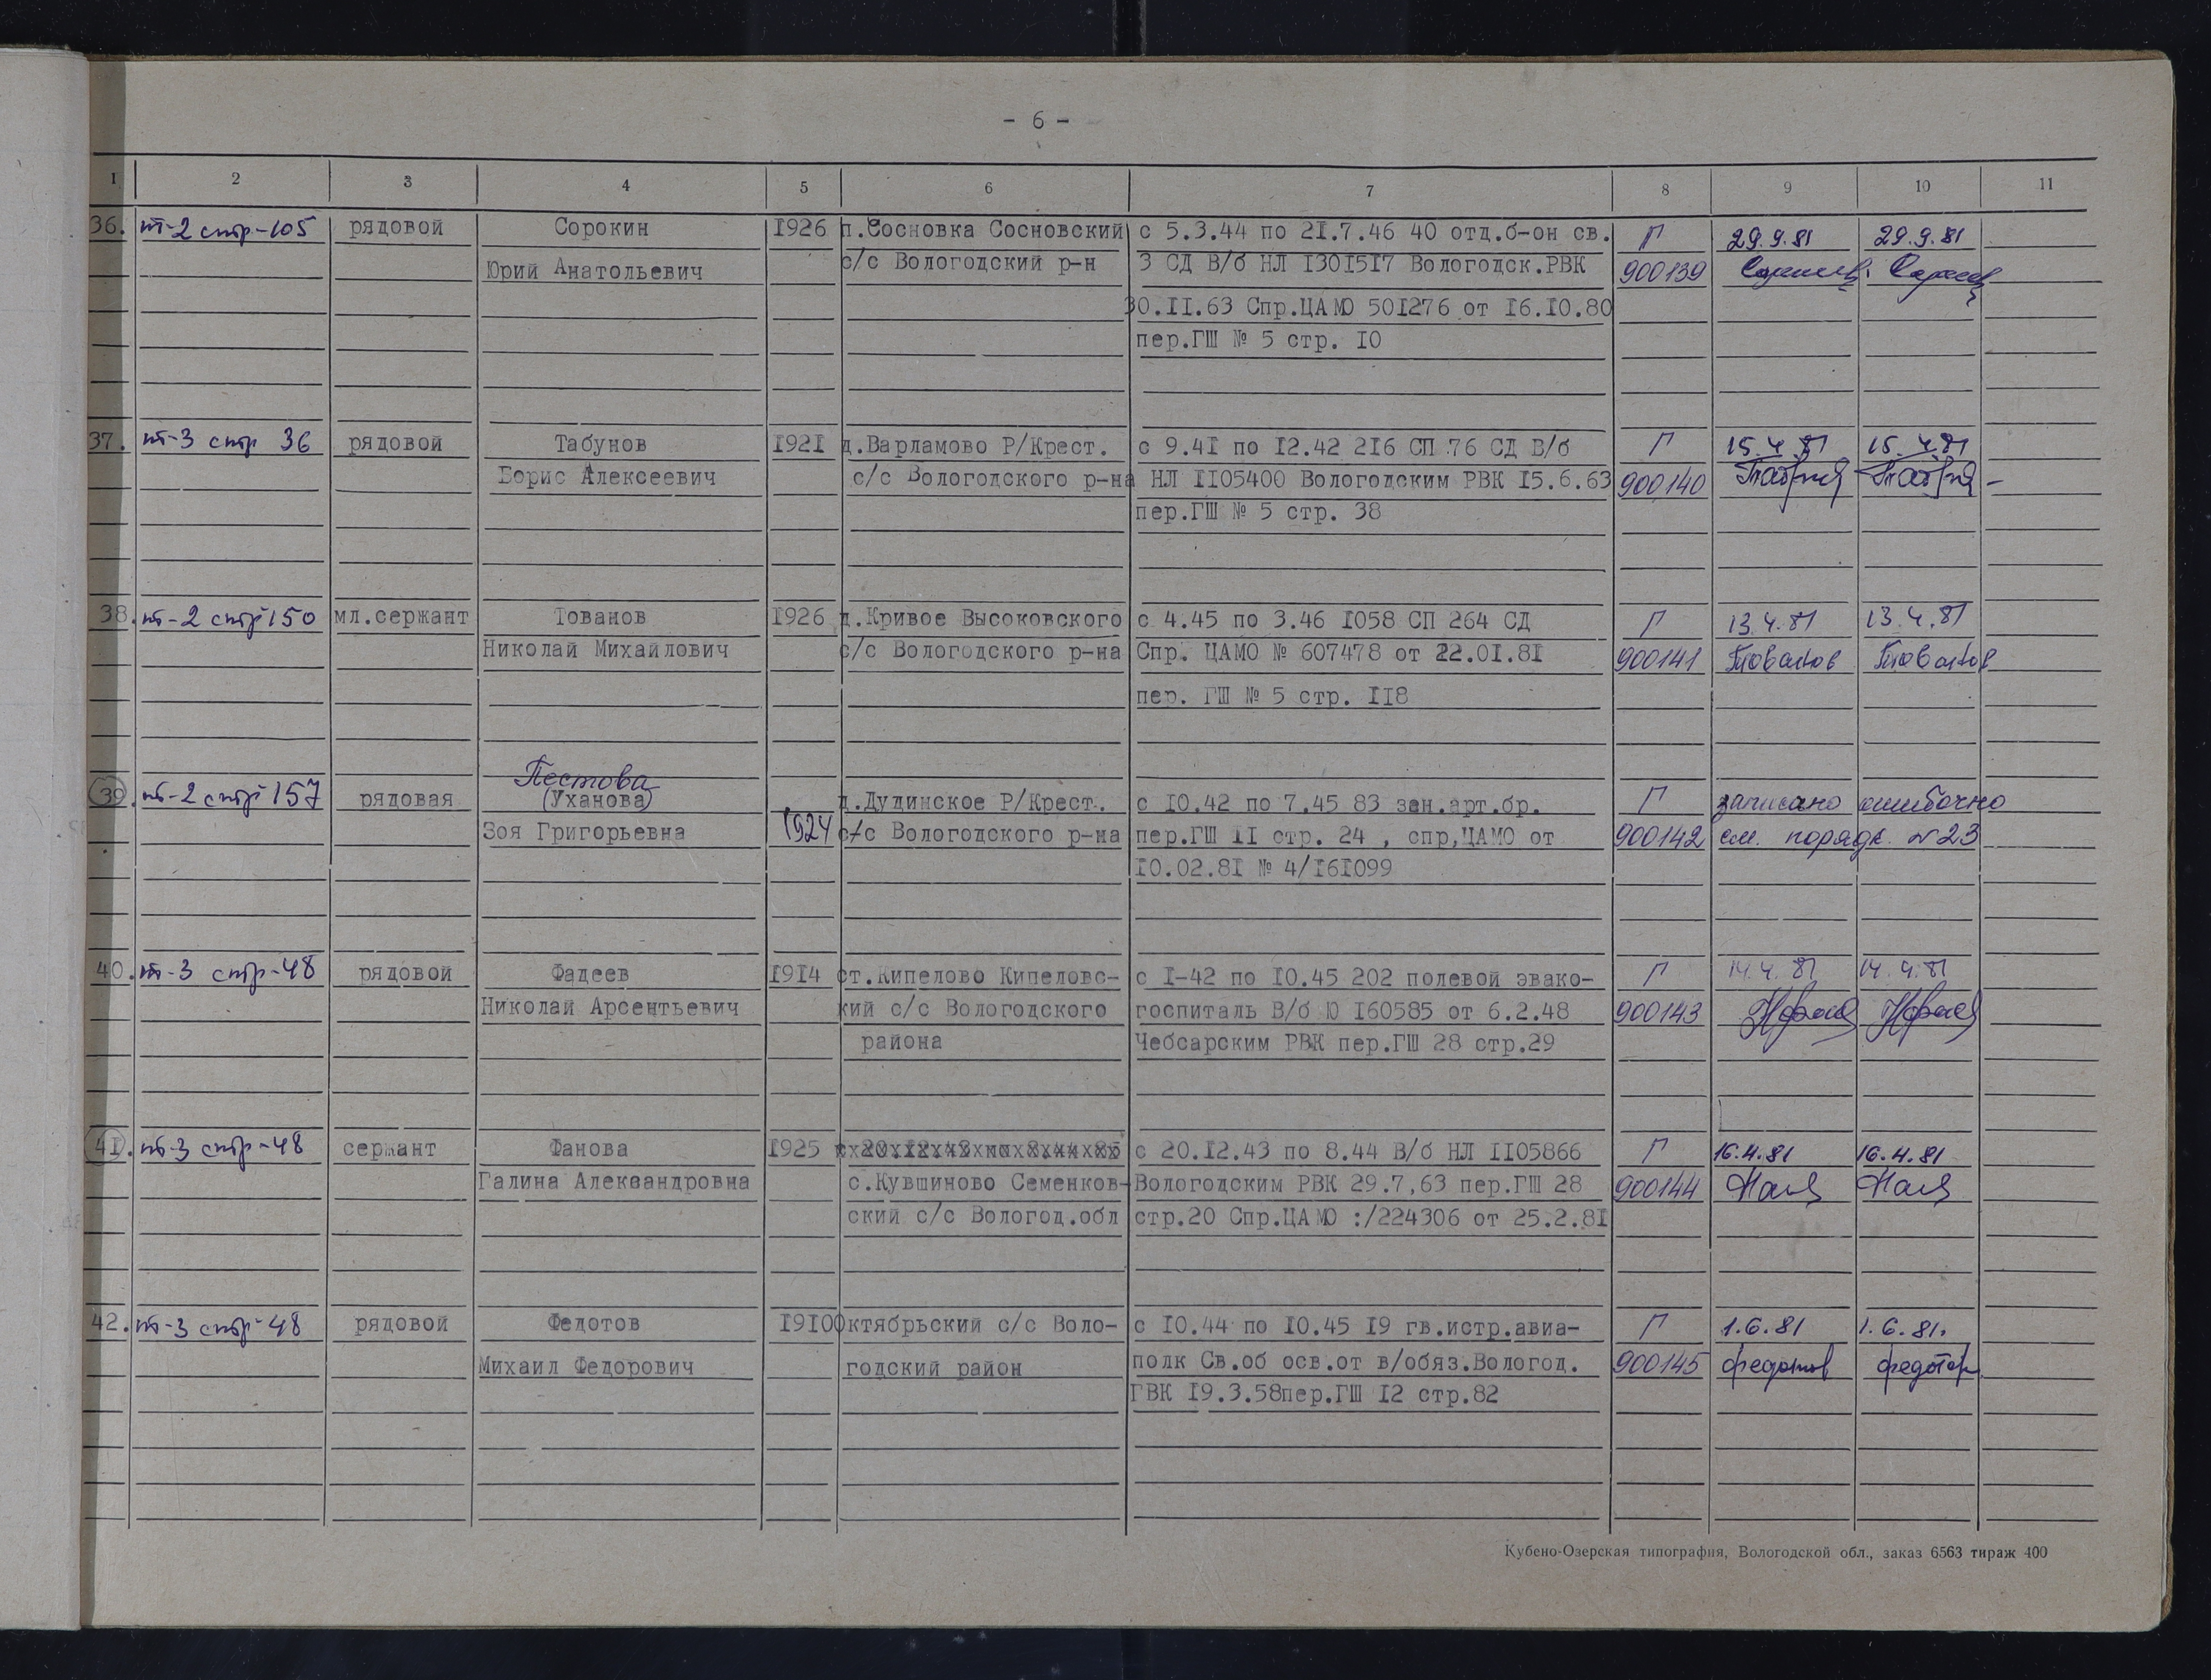 - 6 -
1 2 3 4 5 6 7 8 9 10 11
36. пт-2 стр-105 рядовой Сорокин 1926 п.Сосновка Сосновский с 5.3.44 по 21.7.46 40 отд.б-он св. Г 29.9.81 29.9.81
Юрий Анатольевич с/с Вологодский р-н 3 СД В/б НЛ 1301517 Вологодск.РВК 900139
30.11.63 Спр.ЦАМО 501276 от 16.10.80
пер.ГШ № 5 стр. 10
37. пт-3 стр 36 рядовой Табунов 1921 д.Варламово Р/Крест. с 9.41 по 12.42 216 СП 76 СД В/б Г 15.4.81 15.4.81
Борис Алексеевич с/с Вологодского р-на НЛ 1105400 Вологодским РВК 15.6.63 900140
пер.ГШ № 5 стр. 38
38. пт-2 стр 150 мл.сержант Тованов 1926 д.Кривое Высоковского с 4.45 по 3.46 1058 СП 264 СД Г 13.4.81 13.4.81
Николай Михайлович с/с Вологодского р-на Спр. ЦАМО № 607478 от 22.01.81 900141 Тованов Тованов
пер. ГШ № 5 стр. 118
Пестова
39. пт-2 стр 157 рядовая (Уханова) д.Дудинское Р/Крест. с 10.42 по 7.45 83 зен.арт.бр. Г записано ошибочно
Зоя Григорьевна 1924 с/с Вологодского р-на пер.ГШ 11 стр. 24 , спр,ЦАМО от 900142 см. порядк. №23
10.02.81 № 4/161099
40. пт-3 стр-48 рядовой Фадеев 1914 ст.Кипелово Кипеловс- с 1-42 по 10.45 202 полевой эвако- Г 14.4.81 14.4.81
Николай Арсентьевич кий с/с Вологодского госпиталь В/б Ю 160585 от 6.2.48 900143
района Чебсарским РВК пер.ГШ 28 стр.29
41. пт-3 стр-48 сержант Фанова 1925 с 20.12.43 по 8.44 В/б НЛ 1105866 Г 16.4.81 16.4.81
Галина Александровна с.Кувшиново Семенков- Вологодским РВК 29.7,63 пер.ГШ 28 900144
ский с/с Вологод.обл стр.20 Спр.ЦАМО :/224306 от 25.2.81
42. пт-3 стр-48 рядовой Федотов 1910 Октябрьский с/с Воло- с 10.44 по 10.45 19 гв.истр.авиа- Г 1.6.81 1.6.81.
Михаил Федорович годский район полк Св.об осв.от в/обяз.Вологод. 900145 Федотов Федотов
ГВК 19.3.58пер.ГШ 12 стр.82
Кубено-Озерская типография, Вологодской обл., заказ 6563 тираж 400